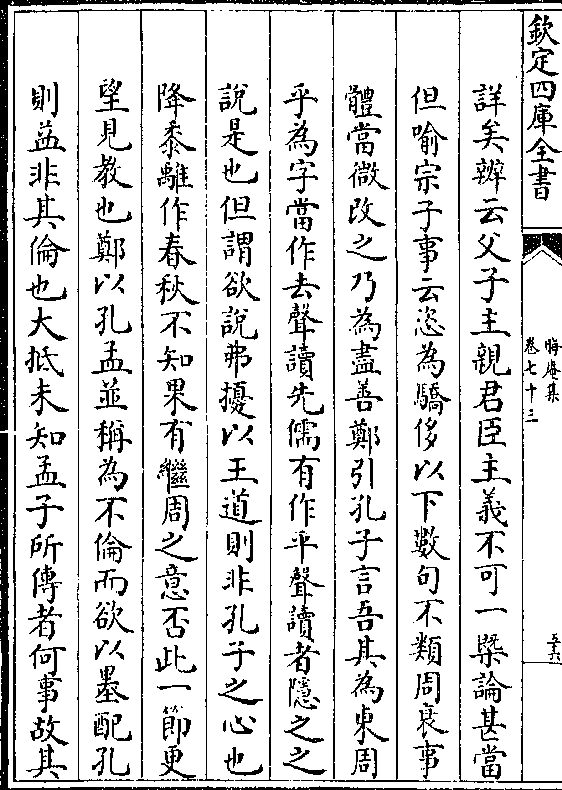 欽定四庫全書
晦庵集
卷七十三
至六
詳矣辨云父子主親君臣主義不可一槩論甚當
但喻宗子事云恣為驕侈以下數句不類周衰事
體當微改之乃為盡善鄭引孔子言吾其為東周
乎為字當作去聲讀先儒有作平聲讀者隱之之
說是也但謂欲說弗擾以王道則非孔子之心也
降黍離作春秋不知果有繼周之意否此一節更
望見教也鄭以孔孟並稱為不倫而欲以墨配孔
則益非其倫也大抵未知孟子所傳者何事故其